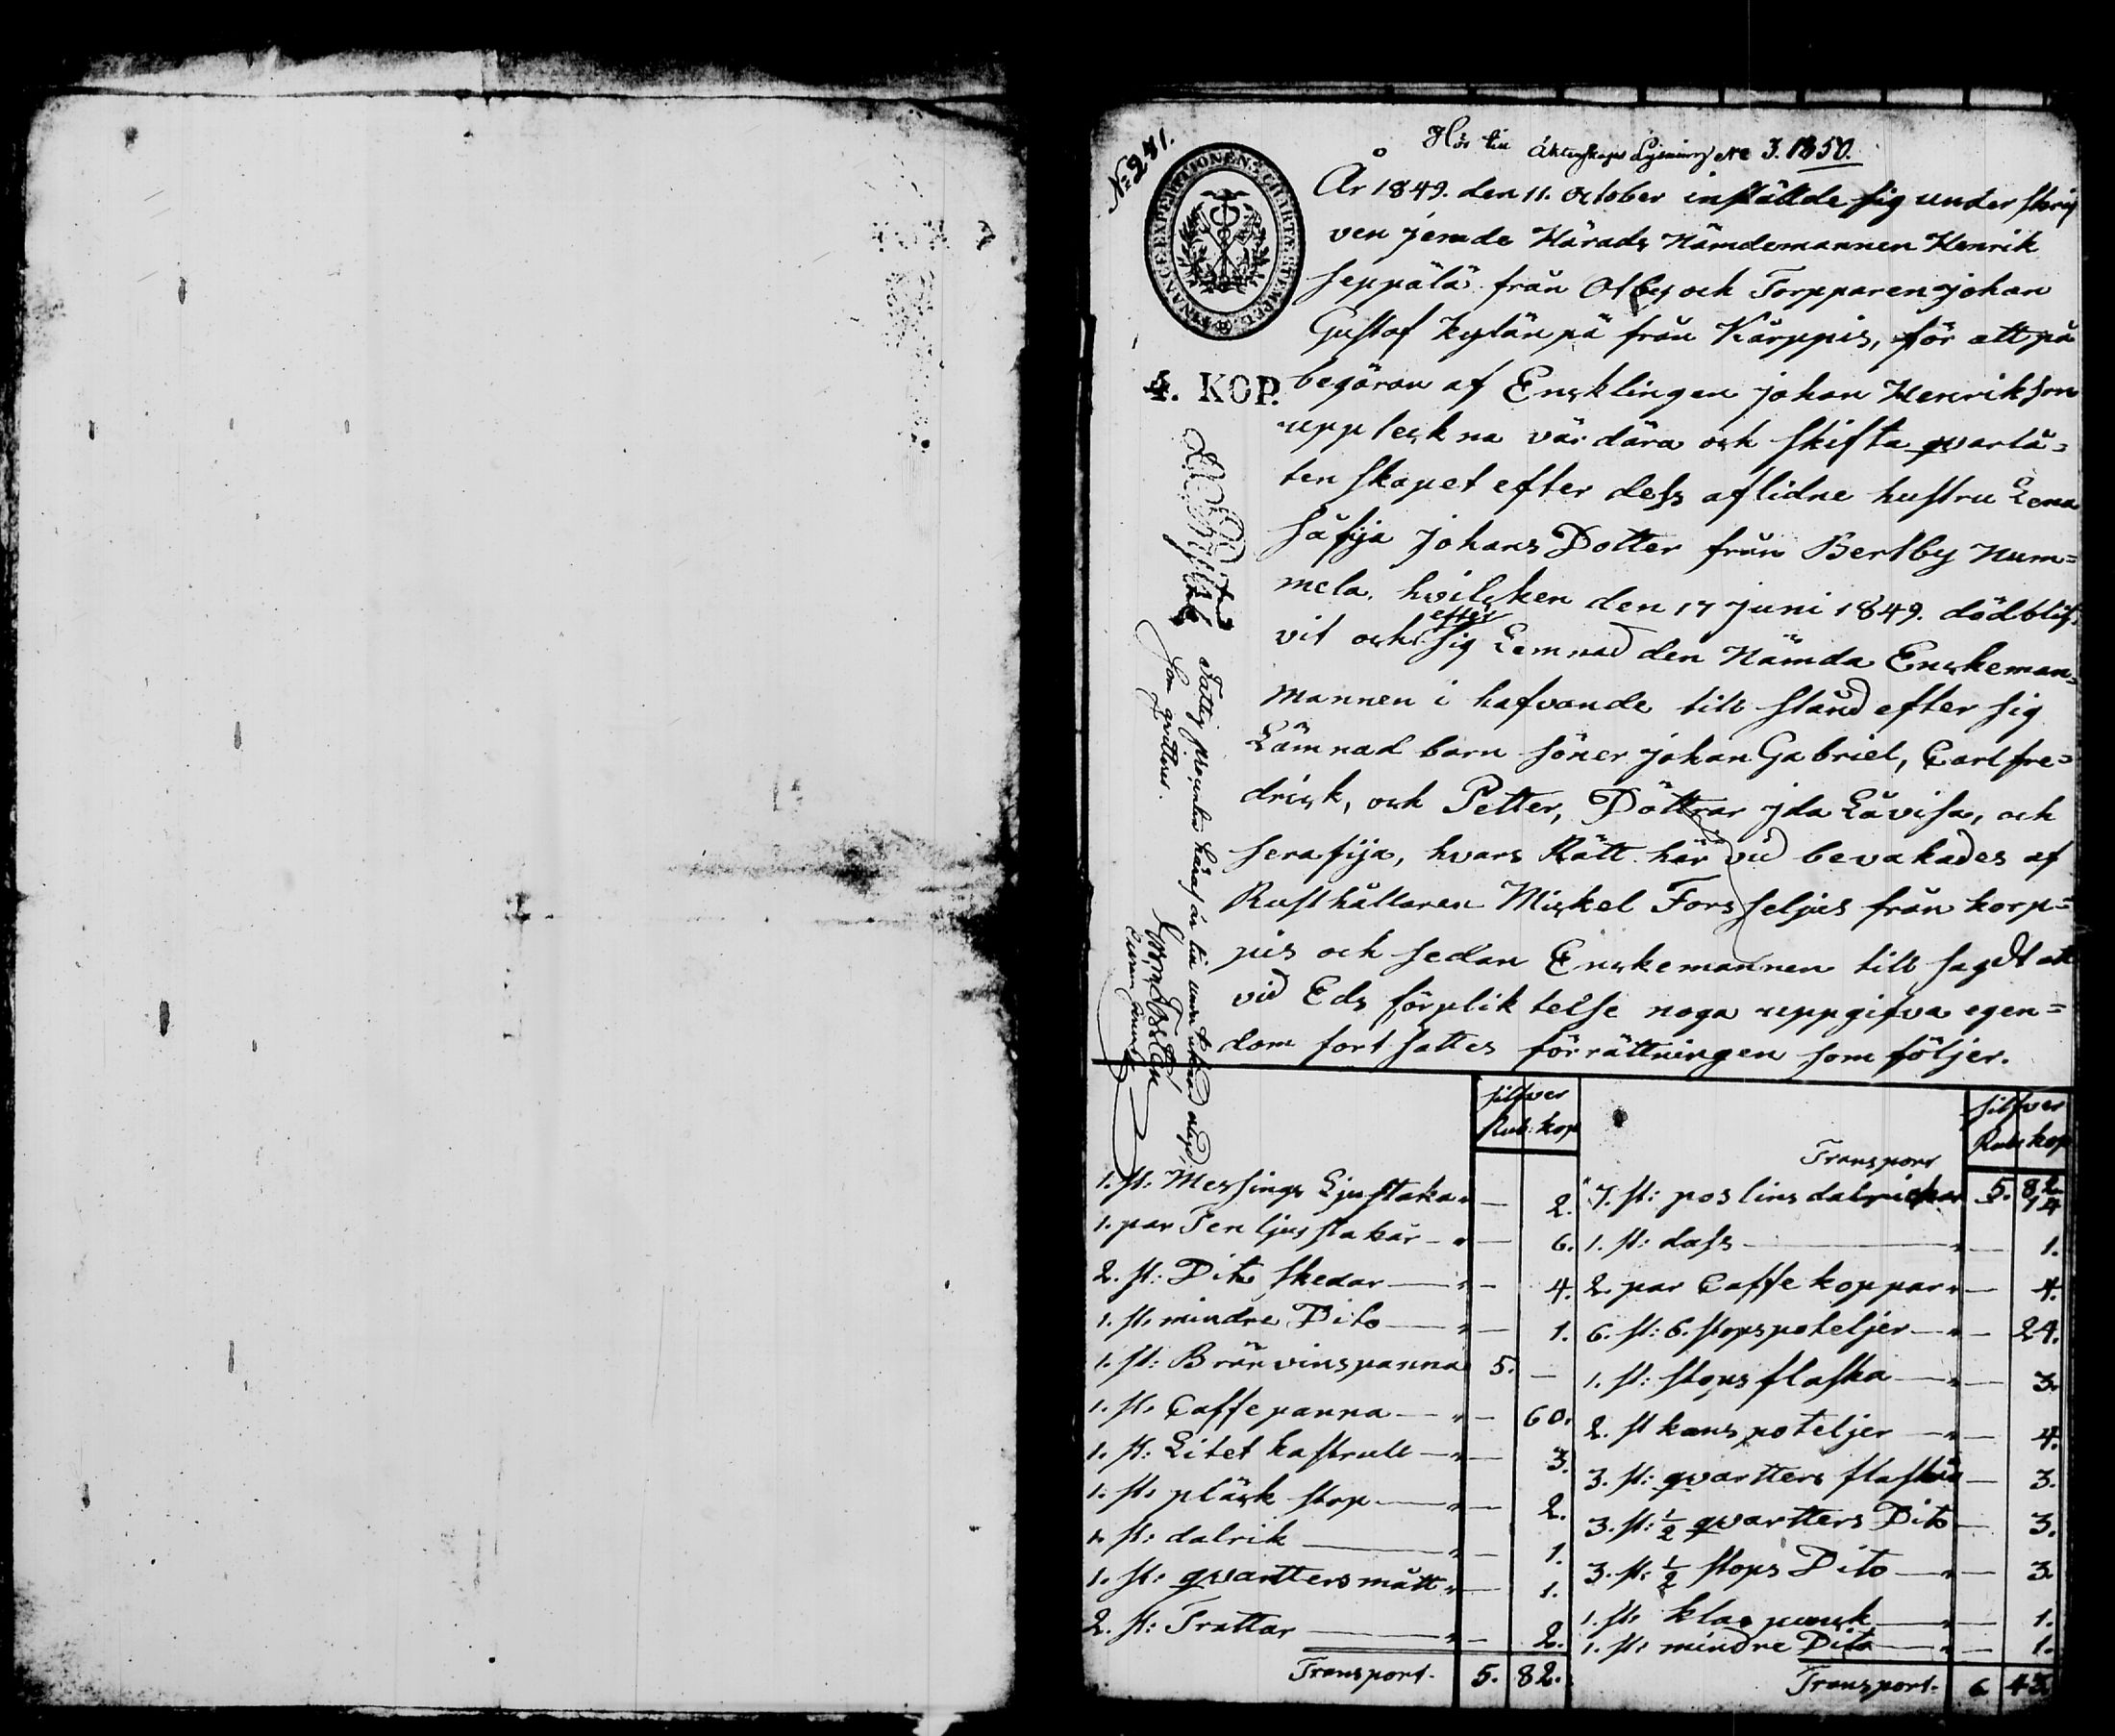 No 281.
Hör till Äktenskaps Lysning No 3. 1850.
FINANCE EXPEDITIONENS CHARTÆ STEMPEL
4. KOP.
År 1849. den 11. October instälde sig under skrif
ven jemde Härads Nämdemannen Henrik
Seppälä från Olby och Torpparen Johan
Gustaf Kylänpä från Kårppis, för att på
begäran af Encklingen Johan Henrikson
uppteckna värdära och skifta qvarlå=
tenskapet efter dess aflidne hustru Lena
Såfija Johans Dotter från Bertby Num=
mela. hvilcken den 17 Juni 1849. dödblif
vit och efter sig Lemnad den Nämda Enckeman=
mannen i hafvande till stånd efter sig
Lämnad barn söner Johan Gabriel, Carl fre=
drick, och Petter, Döttrar Jda Låvisa, och
Serafija, hvars Rätt här vid bevakades af
Rusthållaren Mickel Forsseljus från korp=
pis och sedan Enckemannen till sagdt att
vid Eds förpliktelse noga uppgifva egen=
dom fort sattes förrättningen som följer.
Fattig procenten häraf är till under teknad
som qvitteras.
silfver
Rub. kop
1. st: Messings Ljustaka — 2.
1. par Ten ljusstakar — 6.
2. st: Dito Skedar — 4.
1. st: mindre Dito — 1.
1. st: Bränvinspanna 5. —
1. st: Caffepanna — 60.
1. st: Litet kastrull — 3.
1. st: pläck stop — 2.
1. st: dalrik — 1.
1. st: qvartters mått — 1.
2. st: Trattar — 2.
Transport. 5. 82.
silfver
Rub kop
Transport 5. 82
7. st: poslins dalrickar — 14
1. st: dass — 1.
2. par Caffe koppar — 4.
6. st: 6. stops poteljer — 24.
1. st: stops flaska — 3.
2. st kans poteljer — 4.
3. st: qvartters flaskor — 3.
3. st: ½ qvartters Dito — 3.
3. st: ½ stops Dito — 3.
1. st: — 1.
1. st: mindre Dito — 1.
Transport. 6 43.